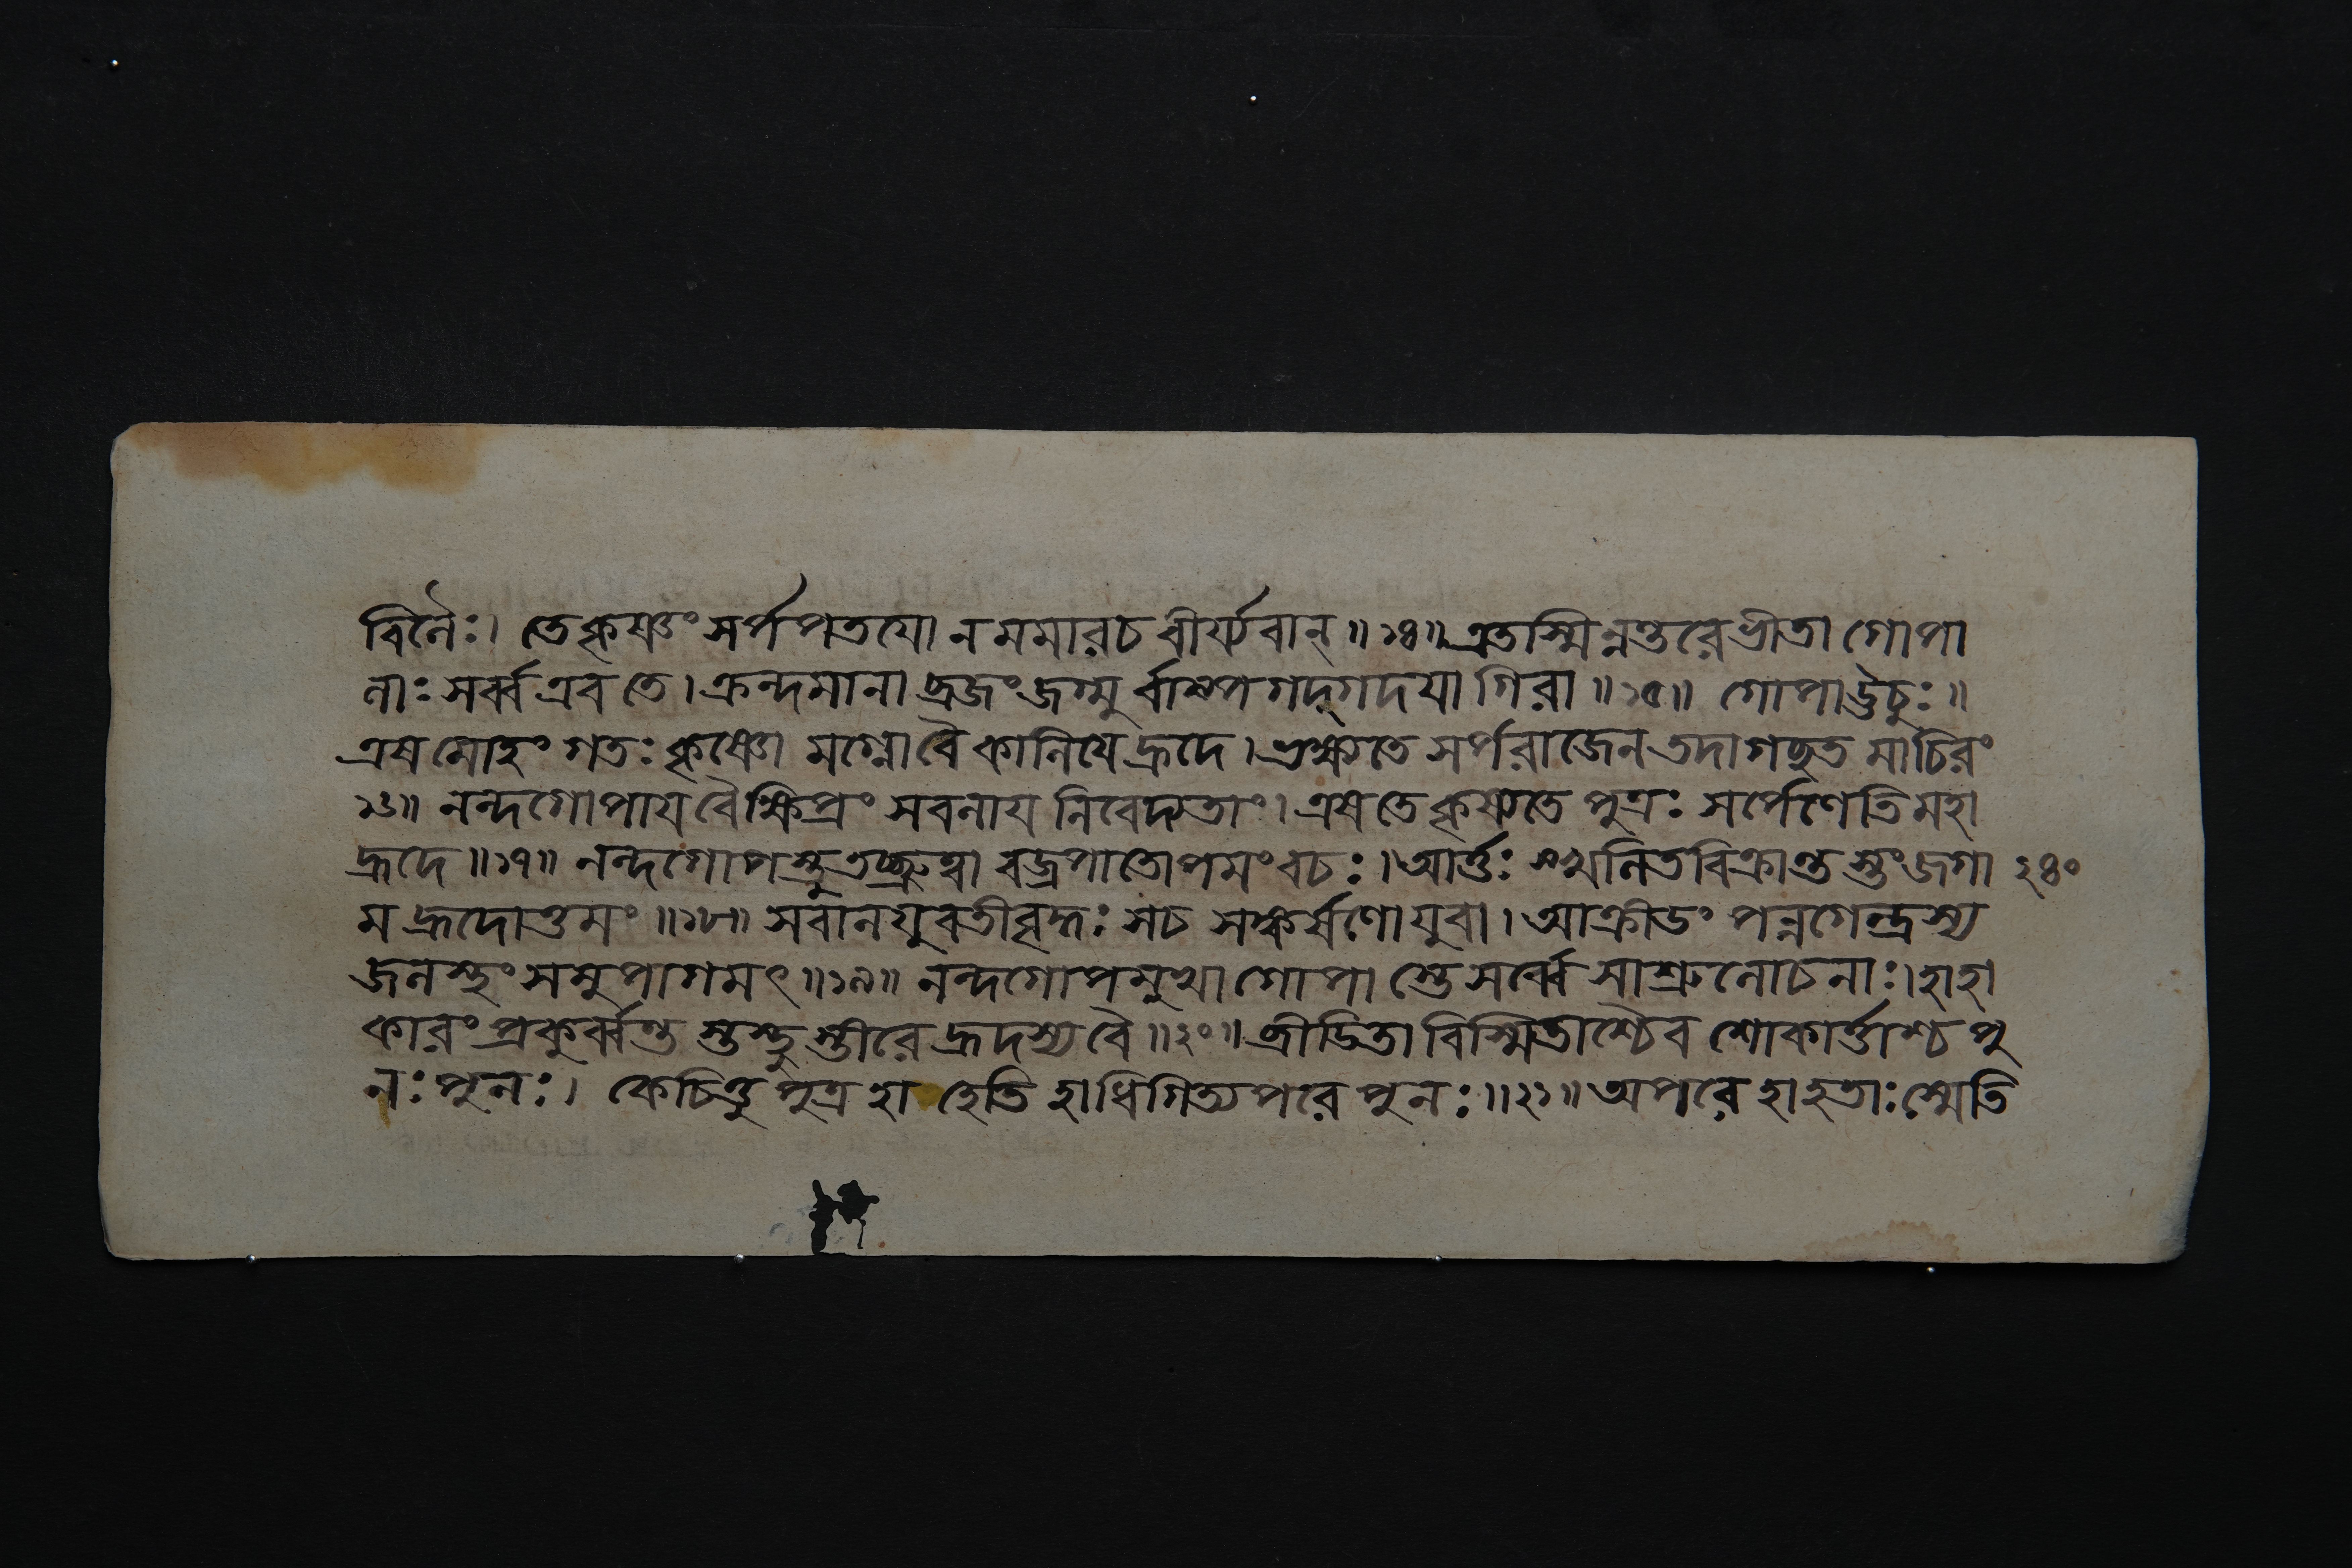 বিলৈঃ। তে কৃষ্ণং সর্পপতয়ো ন মমার চ বীর্য্যবান্॥১৪॥ এতস্মিন্নন্তরে ভীতা গোপা
লাঃ সর্ব্ব এব তে। ক্রন্দমানা ব্রজং জগ্মু র্বাষ্পগদ্গদয়া গিরা॥১৫॥ গোপা ঊচুঃ॥
এষ মোহং গতঃ কৃষ্ণো মগ্নো বৈ কালিয়ে হ্রদে। ভক্ষ্যতে সর্পরাজেন তদাগচ্ছত মাচিরং
১৬॥ নন্দগোপায় বৈ ক্ষিপ্রং সবলায় নিবেদ্যতাং। এষ তে কৃষ্যতে পুত্রঃ সর্পেণেতি মহা
হ্রদে॥১৭॥ নন্দগোপস্তু তচ্ছ্রুত্বা বজ্রপাতোপমং বচঃ। আর্ত্তঃ স্খলিতবিক্রান্ত স্তং জগা ২৪০
ম হ্রদোত্তমং॥১৮॥ সবালযুবতীবৃদ্ধঃ স চ সঙ্কর্ষণো যুবা। আক্রীডং পন্নগেন্দ্রস্য
জলস্থং সমুপাগমৎ॥১৯॥ নন্দগোপমুখা গোপা স্তে সর্ব্বে সাশ্রুলোচনাঃ। হাহা
কারং প্রকুর্ব্বন্ত স্তস্থু স্তীরে হ্রদস্য বৈ॥২০॥ ব্রীডিতা বিস্মিতাশ্চৈব শোকার্ত্তাশ্চ পু
নঃ পুনঃ। কেচিত্তু পুত্র হা হেতি হা ধিগিত্যপরে পুনঃ॥২১॥ অপরে হা হতাঃ স্মেতি